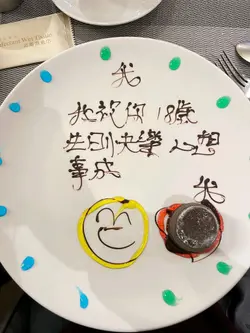 祝你 18歲
生日快樂 心想
事成